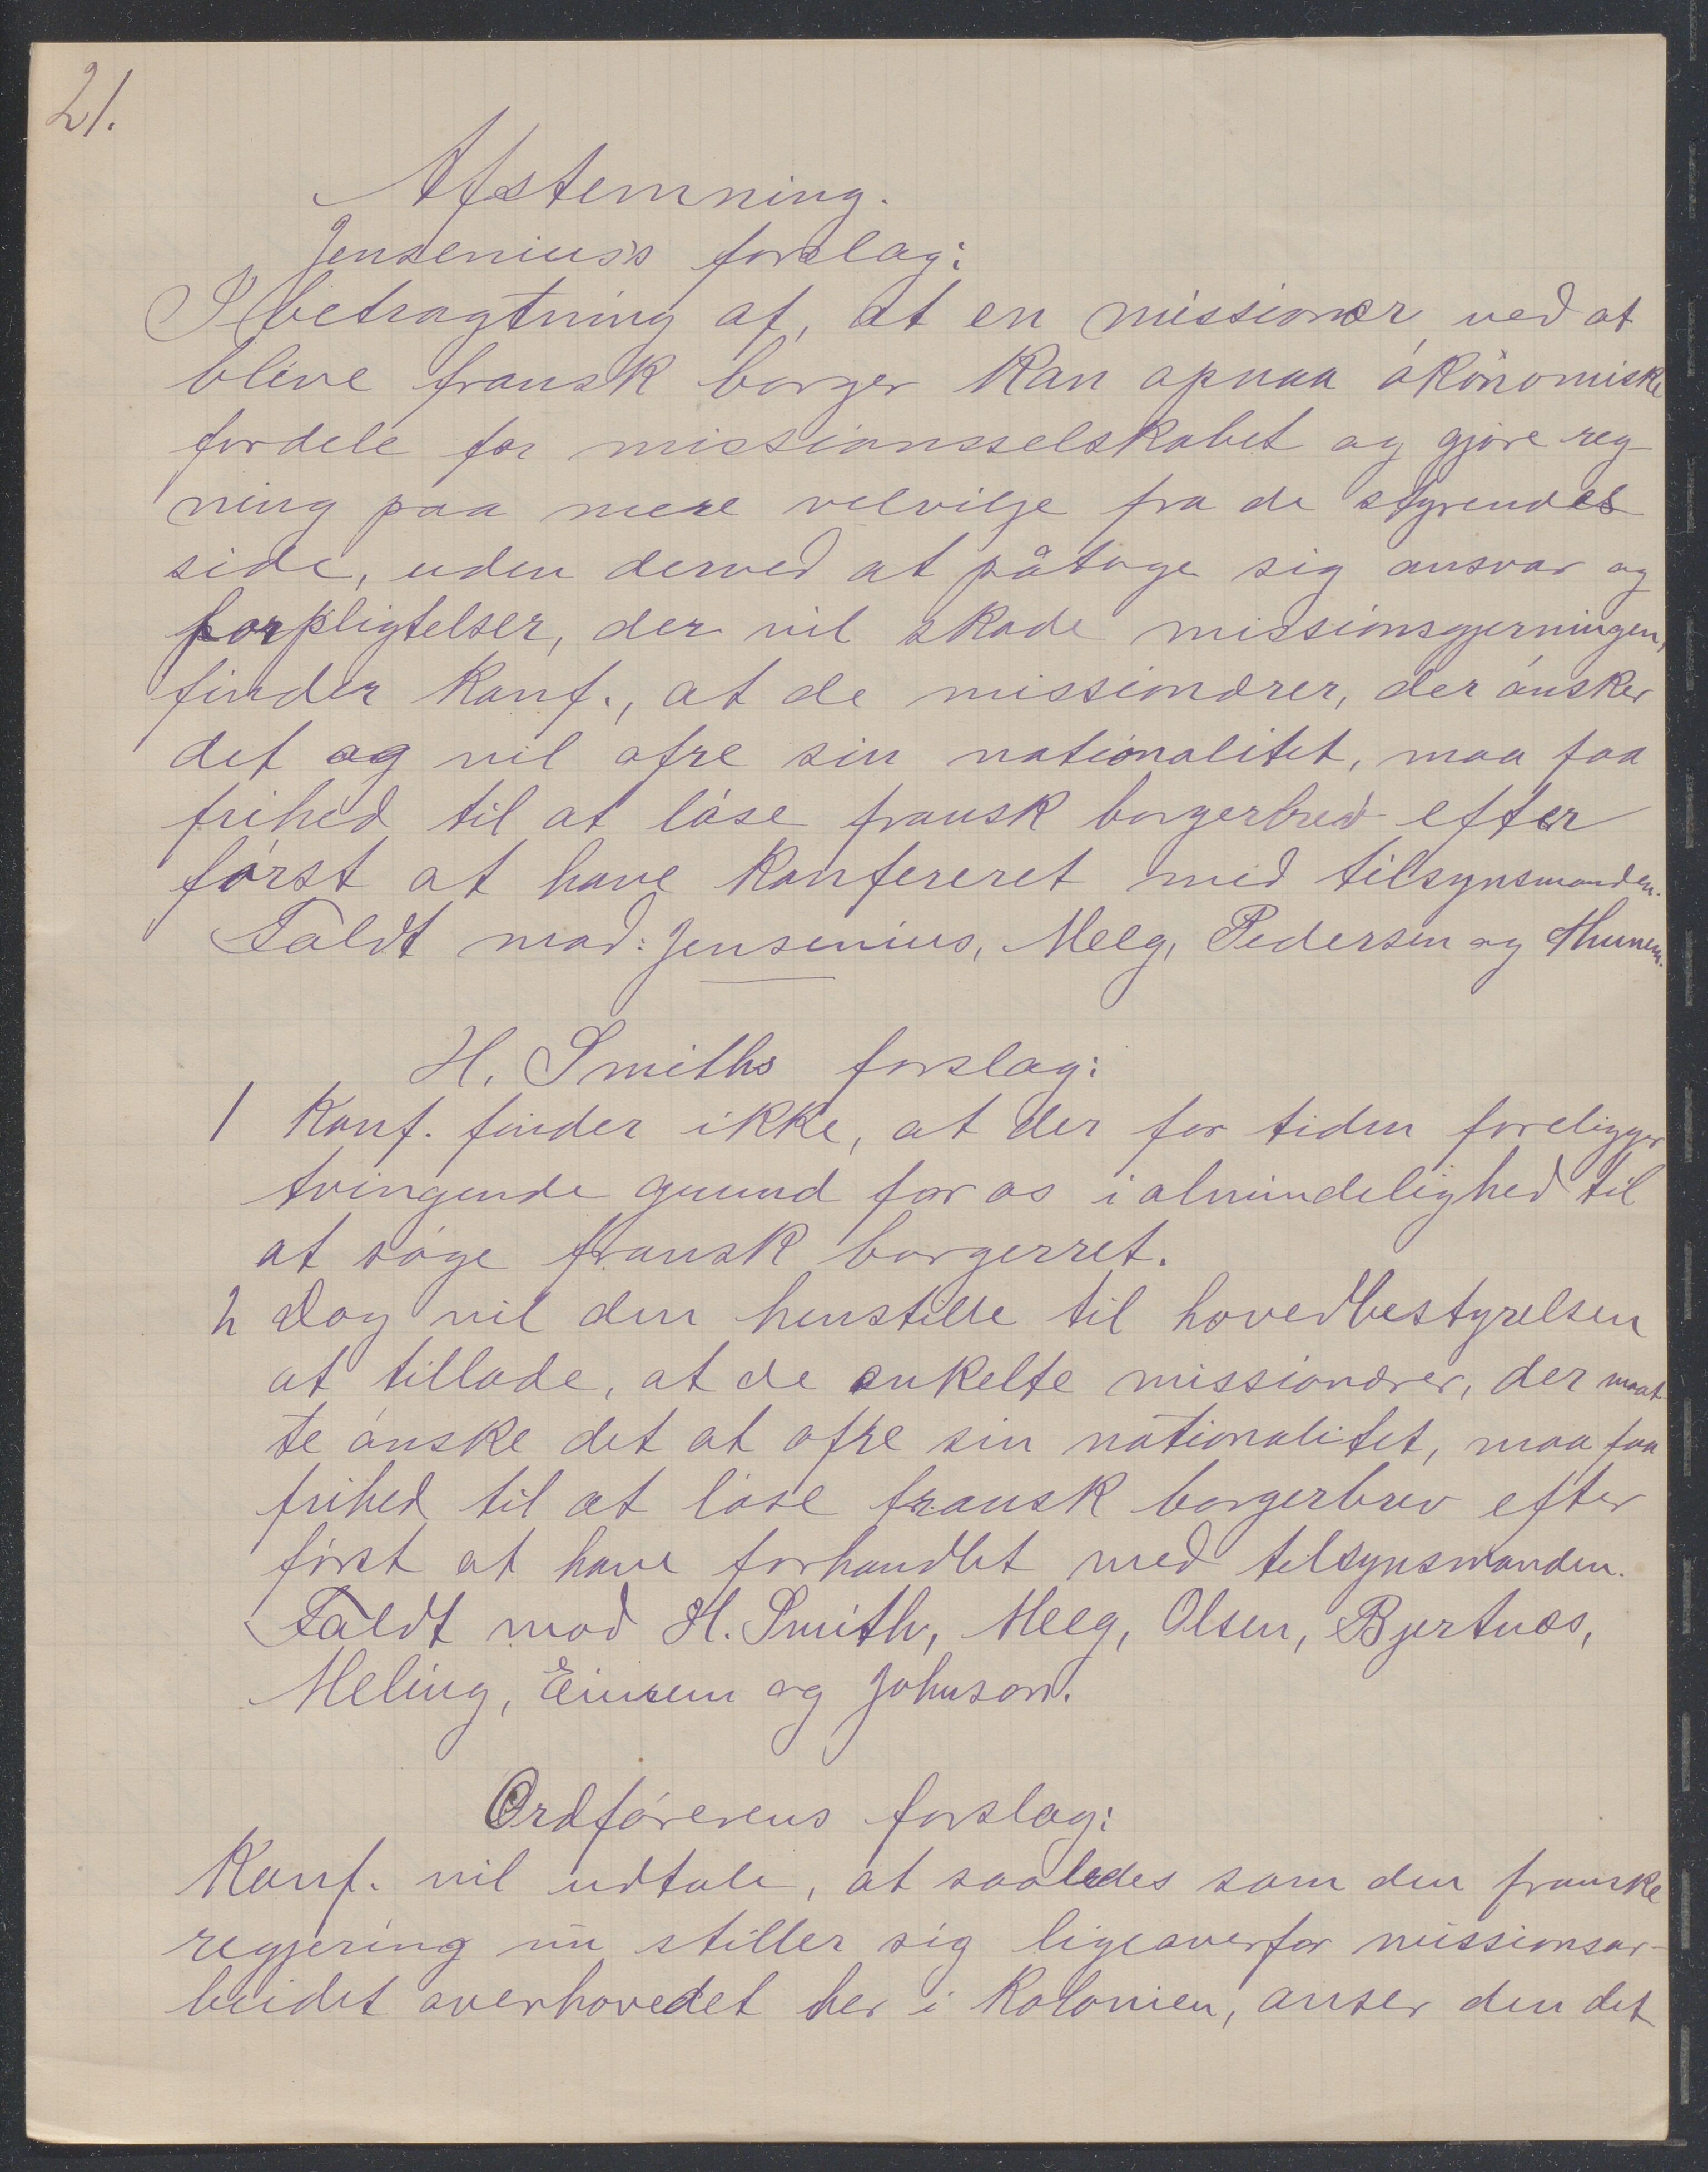 21.
Afstemning.
Jensenius's forslag:
I betragtning af, at en missionær ved at
blive fransk borger kan opnaa ókonomiske
fordele for missionsselskabet og gjóre reg-
ning paa mere velvilje fra de styrendes
side, uden derved at påtage sig ansvar og
forpligtelser, der vil skade missionsgjerningen,
finder Konf., at de missionærer, der ónsker
det og vil ofre sin nationalitet, maa faa
frihed til at lóse fransk borgerbrev efter
fórst at have konfereret med tilsynsmanden.
Faldt mod: Jensenius, Meeg, Pedersen og Thunem.
H. Smiths forslag:
1 Konf. finder ikke, at der for tiden foreligger
tvingende grund for os i almindelighed til
at sóge fransk borgerret.
2 Dog vil den henstille til hovedbestyrelsen
at tillade, at de enkelte missionærer, der maat-
te ónske det at ofre sin nationalitet, maa faa
frihed til at lóse fransk borgerbrev efter
fórst at have forhandlet med tilsynsmanden.
Faldt mod H. Smith, Meeg, Olsen, Bjertnæs,
Meling, Einrem og Johnson.
Ordfórerens forslag:
Konf. vil udtale, at saaledes som den franske
regjering nu stiller sig ligeoverfor missionsar-
beidet overhovedet her i Kolonien, anser den det